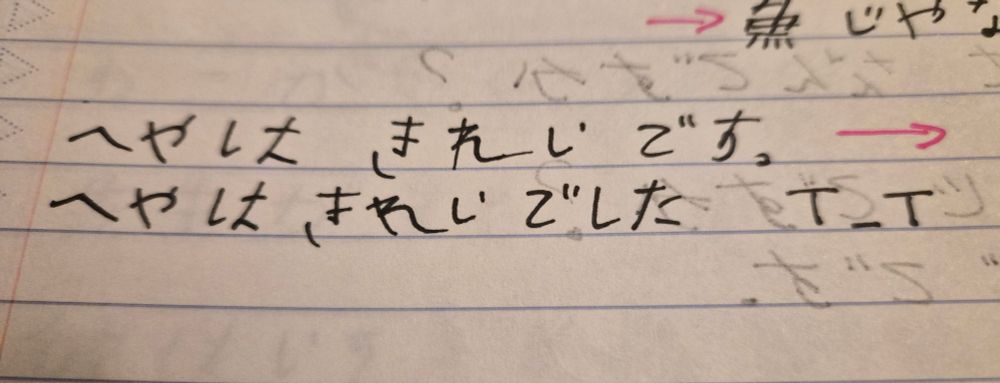 → 魚 じゃな
へやは きれい です。 →
へやは きれい でした T_T